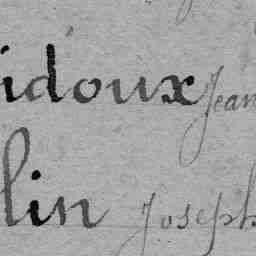 idoux Jean
lin Joseph